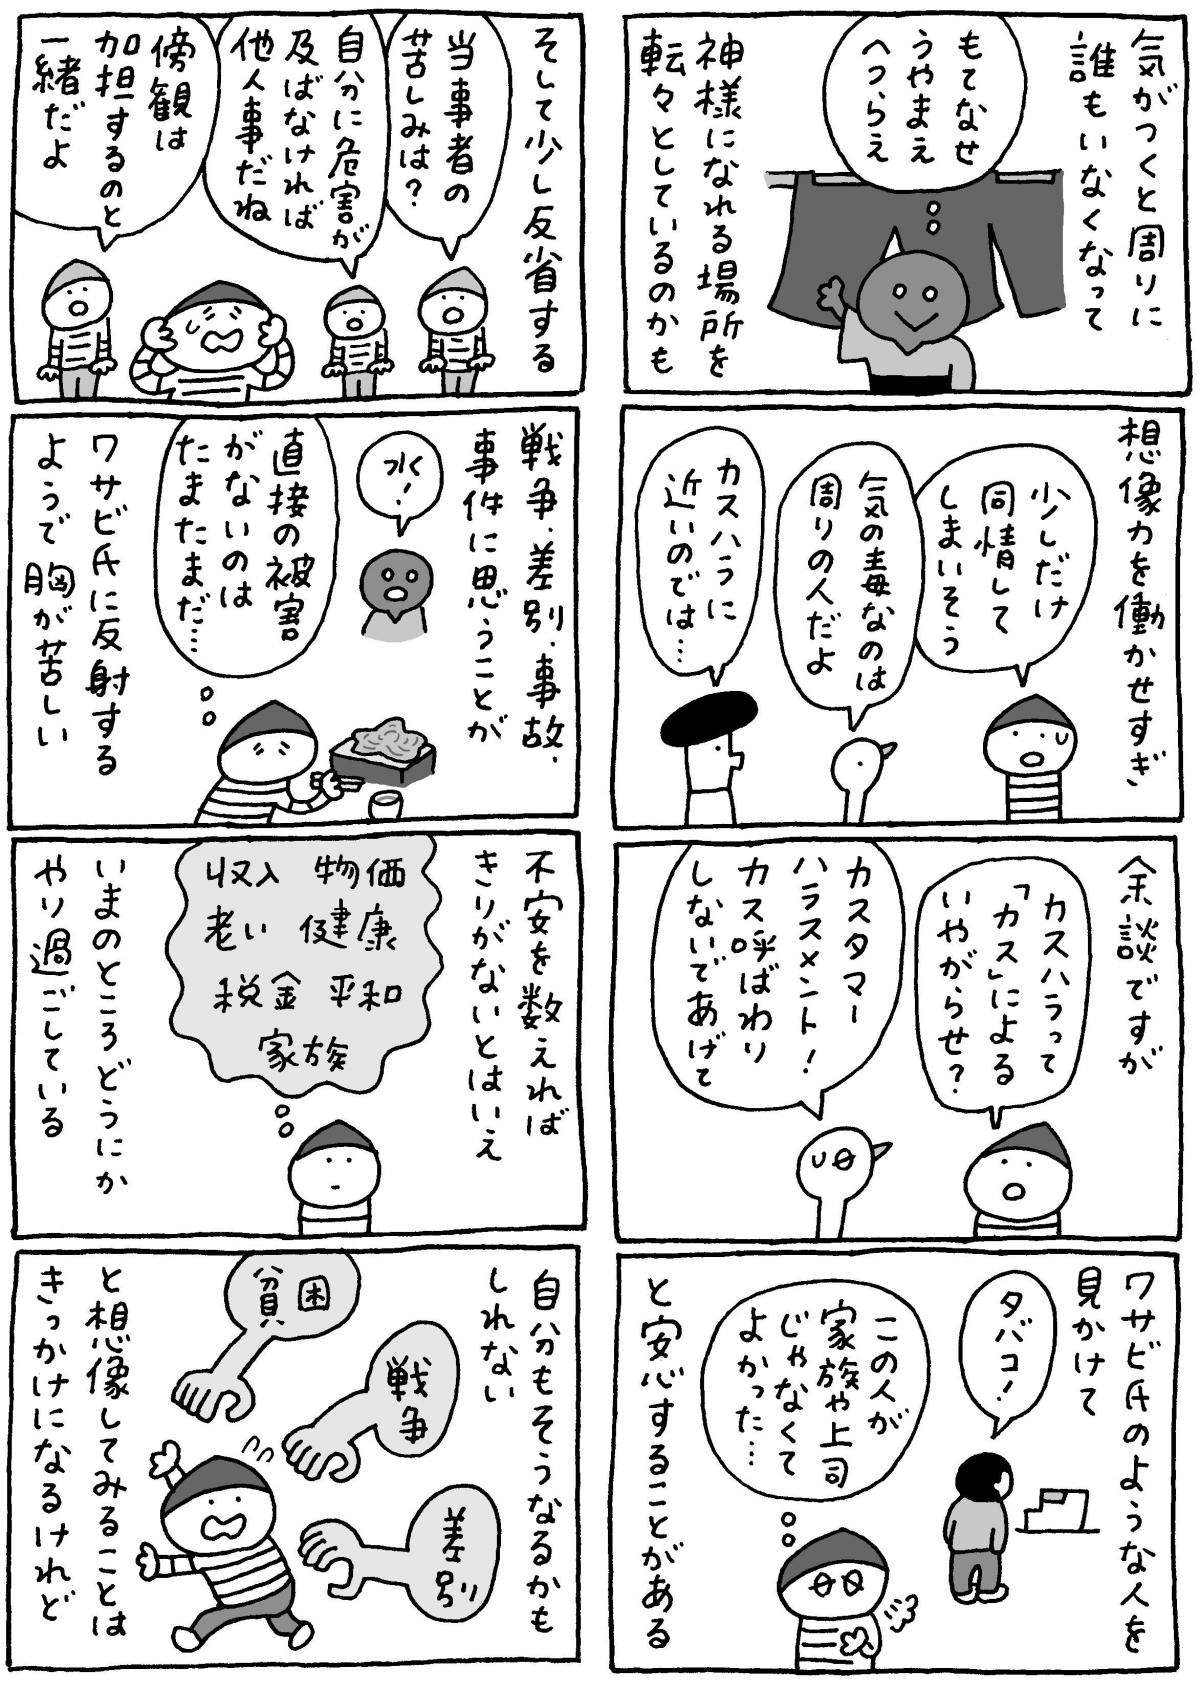 気がつくと周りに
誰もいなくなって
もてなせ
うやまえ
へつらえ
神様になれる場所を
転々としているのかも
想像力を働かせすぎ
少しだけ
同情して
しまいそう
気の毒なのは
周りの人だよ
カスハラに
近いのでは…
余談ですが
カスハラって
「カス」による
いやがらせ?
カスタマー
ハラスメント!
カス呼ばわり
しないであげて
ワサビ氏のような人を
見かけて
タバコ!
この人が
家族や上司
じゃなくて
よかった…
と安心することがある
そして少し反省する
当事者の
苦しみは?
自分に危害が
及ばなければ
他人事だね
傍観は
加担するのと
一緒だよ
戦争・差別・事故・
事件に思うことが
水!
直接の被害
がないのは
たまたまだ…
ワサビ氏に反射する
ようで胸が苦しい
不安を数えれば
きりがないとはいえ
収入 物価
老い 健康
税金 平和
家族
いまのところどうにか
やり過ごしている
自分もそうなるかも
しれない
貧困
戦争
差別
と想像してみることは
きっかけになるけれど